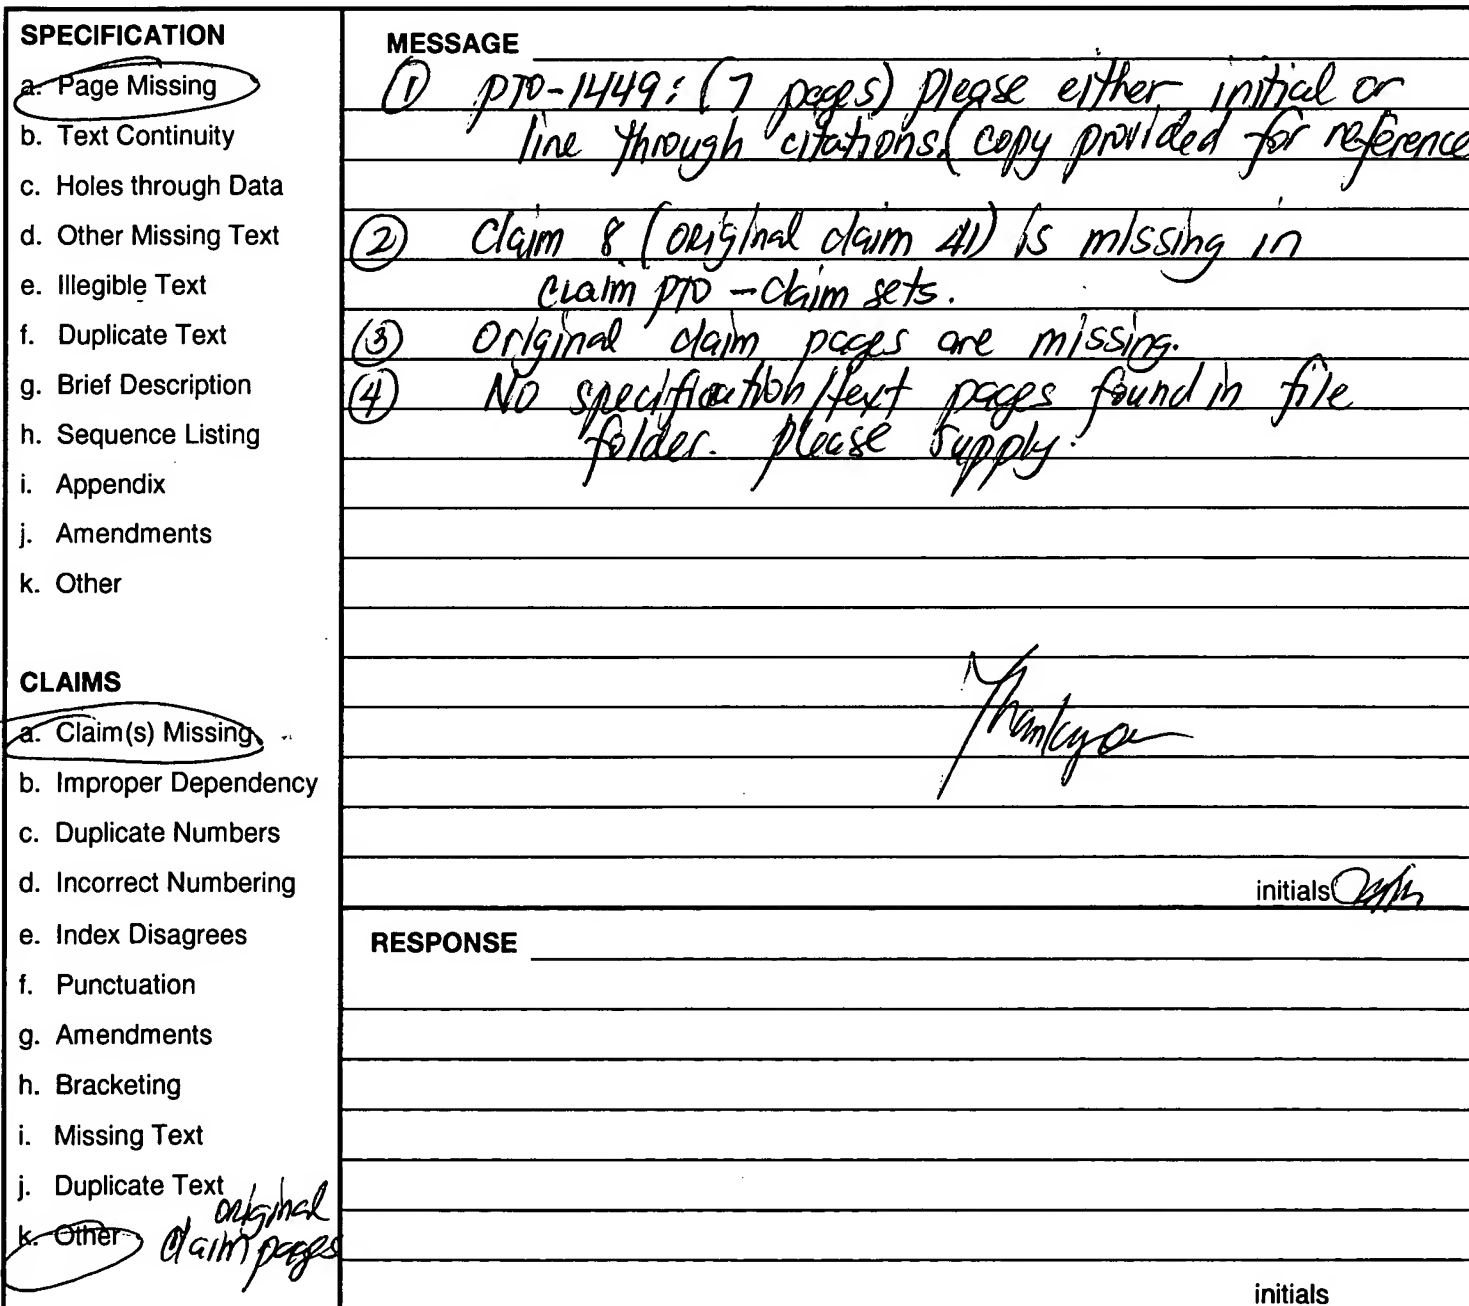 SPECIFICATION
a. Page Missing
b. Text Continuity
c. Holes through Data
d. Other Missing Text
e. Illegible Text
f. Duplicate Text
g. Brief Description
h. Sequence Listing
i. Appendix
j. Amendments
k. Other
CLAIMS
a. Claim(s) Missing
b. Improper Dependency
c. Duplicate Numbers
d. Incorrect Numbering
e. Index Disagrees
f. Punctuation
g. Amendments
h. Bracketing
i. Missing Text
j. Duplicate Text
k. Other original
claim pages
MESSAGE
① PTO-1449: (7 pages) please either initial or
line through citations. (copy provided for reference
② Claim 8 (original claim 41) is missing in
claim PTO - claim sets.
③ Original claim pages are missing.
④ No specification/text pages found in file
folder. please supply.
Thank you
initials
RESPONSE
initials